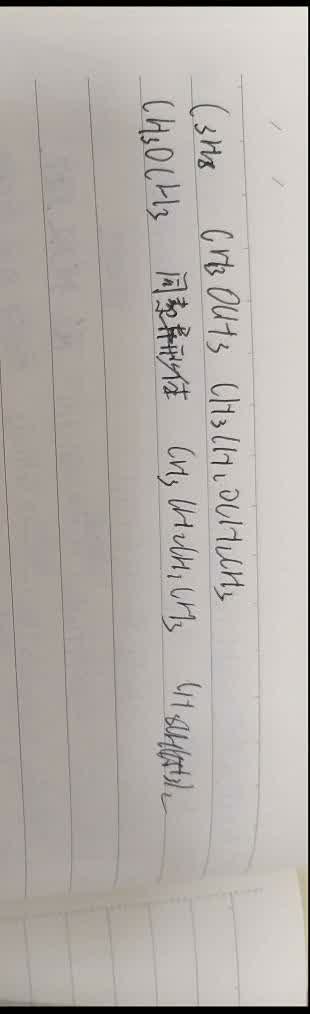 C3H8 CH3OCH3 CH3CH2OCH2CH3
CH3OCH3 同素异形体 CH3CH2CH2CH3 CH3CH(CH3)2